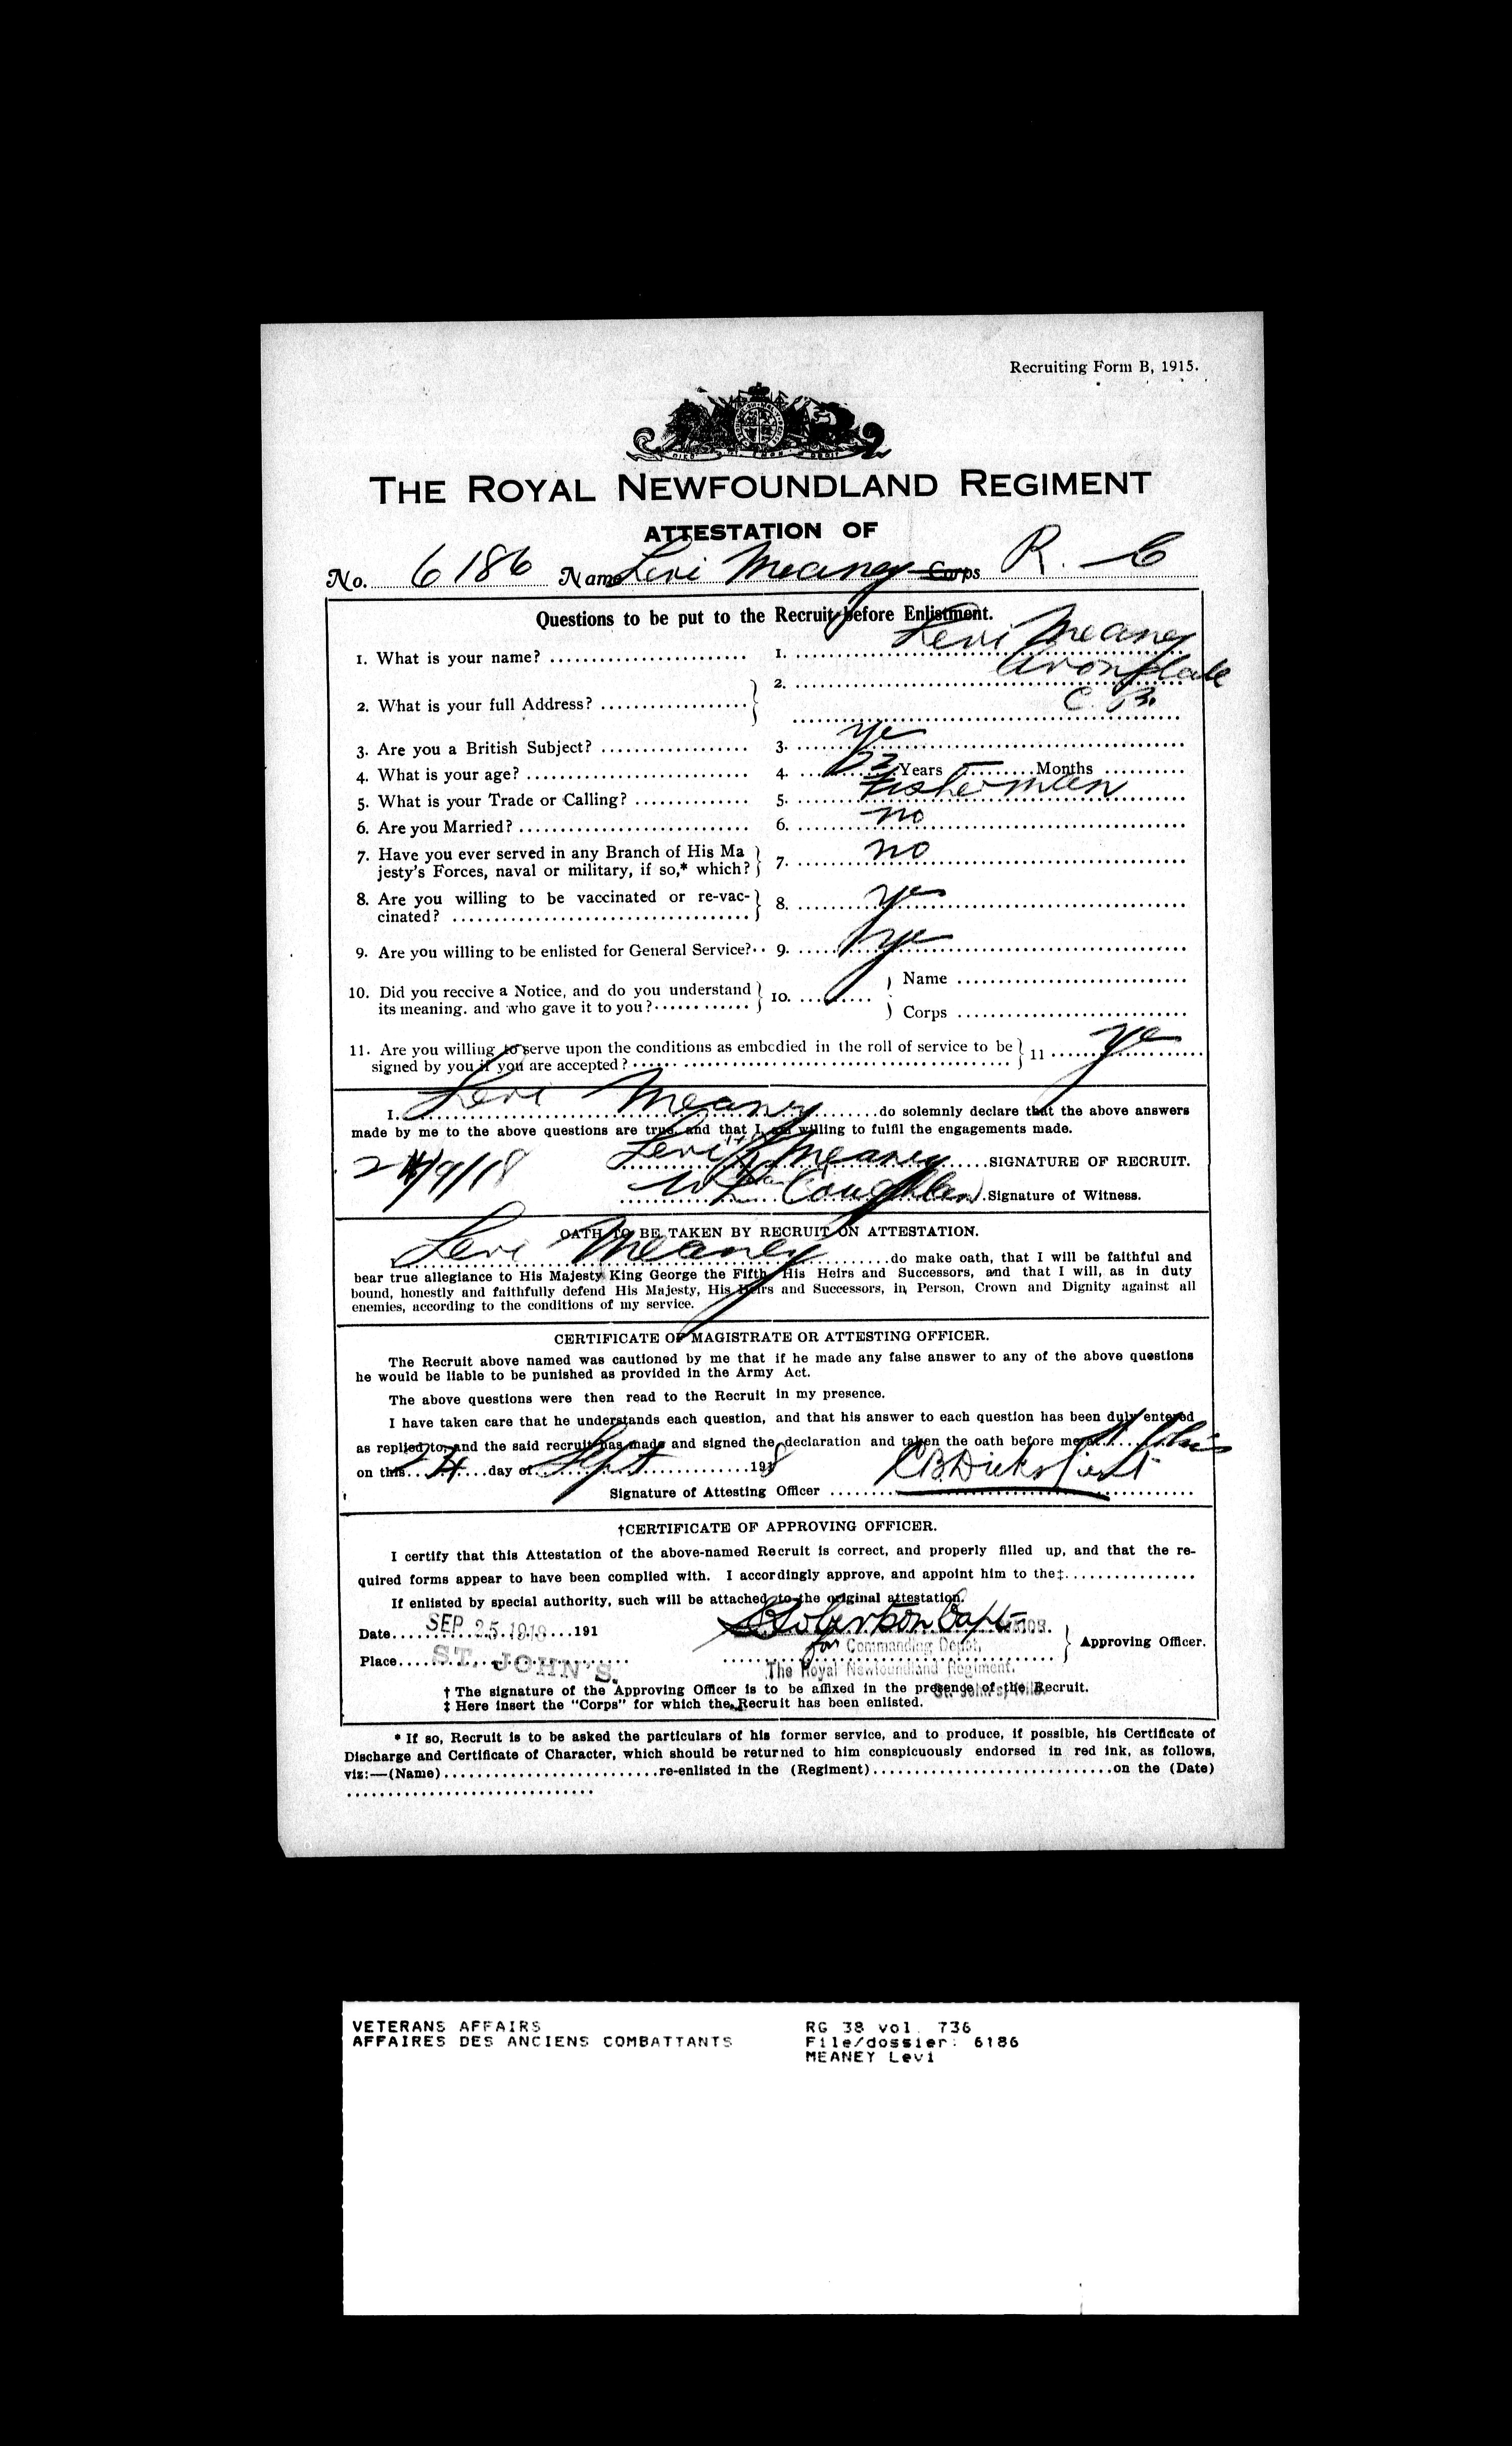 Recruiting Form B, 1915.
THE ROYAL NEWFOUNDLAND REGIMENT
ATTESTATION OF
No. 6186 Name Levi Meaney Corps R. C
Questions to be put to the Recruit before Enlistment.
1. What is your name? 1. Levi Meaney
2. What is your full Address? 2. Avondale
C. B.
3. Are you a British Subject? 3. Yes
4. What is your age? 4. Years Months
5. What is your Trade or Calling? 5. Fisherman
6. Are you Married? 6. no
7. Have you ever served in any Branch of His Ma
jesty's Forces, naval or military, if so,* which? 7. no
8. Are you willing to be vaccinated or re-vac-
cinated? 8. yes
9. Are you willing to be enlisted for General Service? 9. yes
10. Did you receive a Notice, and do you understand
its meaning. and who gave it to you? 10. Name
Corps
11. Are you willing to serve upon the conditions as embodied in the roll of service to be
signed by you if you are accepted? 11 yes
I. Levi Meaney do solemnly declare that the above answers
made by me to the above questions are true, and that I am willing to fulfil the engagements made.
24/9/18 Levi Meaney SIGNATURE OF RECRUIT.
Coughlan Signature of Witness.
OATH TO BE TAKEN BY RECRUIT ON ATTESTATION.
I. Levi Meaney do make oath, that I will be faithful and
bear true allegiance to His Majesty King George the Fifth, His Heirs and Successors, and that I will, as in duty
bound, honestly and faithfully defend His Majesty, His Heirs and Successors, in Person, Crown and Dignity against all
enemies, according to the conditions of my service.
CERTIFICATE OF MAGISTRATE OR ATTESTING OFFICER.
The Recruit above named was cautioned by me that if he made any false answer to any of the above questions
he would be liable to be punished as provided in the Army Act.
The above questions were then read to the Recruit in my presence.
I have taken care that he understands each question, and that his answer to each question has been duly entered
as replied to, and the said recruit has made and signed the declaration and taken the oath before me at St. Johns
on this 24 day of Sept 1918
Signature of Attesting Officer C.B. Dicks Lieut
†CERTIFICATE OF APPROVING OFFICER.
I certify that this Attestation of the above-named Recruit is correct, and properly filled up, and that the re-
quired forms appear to have been complied with. I accordingly approve, and appoint him to the‡
If enlisted by special authority, such will be attached to the original attestation.
Date SEP 25 1918 191 Robertson Capt
Place ST. JOHN'S. for Commanding Depot, Approving Officer.
The Royal Newfoundland Regiment.
St. John's, Nfld.
† The signature of the Approving Officer is to be affixed in the presence of the Recruit.
‡ Here insert the "Corps" for which the Recruit has been enlisted.
* If so, Recruit is to be asked the particulars of his former service, and to produce, if possible, his Certificate of
Discharge and Certificate of Character, which should be returned to him conspicuously endorsed in red ink, as follows,
viz:—(Name) re-enlisted in the (Regiment) on the (Date)
VETERANS AFFAIRS RG 38 vol. 736
AFFAIRES DES ANCIENS COMBATTANTS File/dossier: 6186
MEANEY Levi